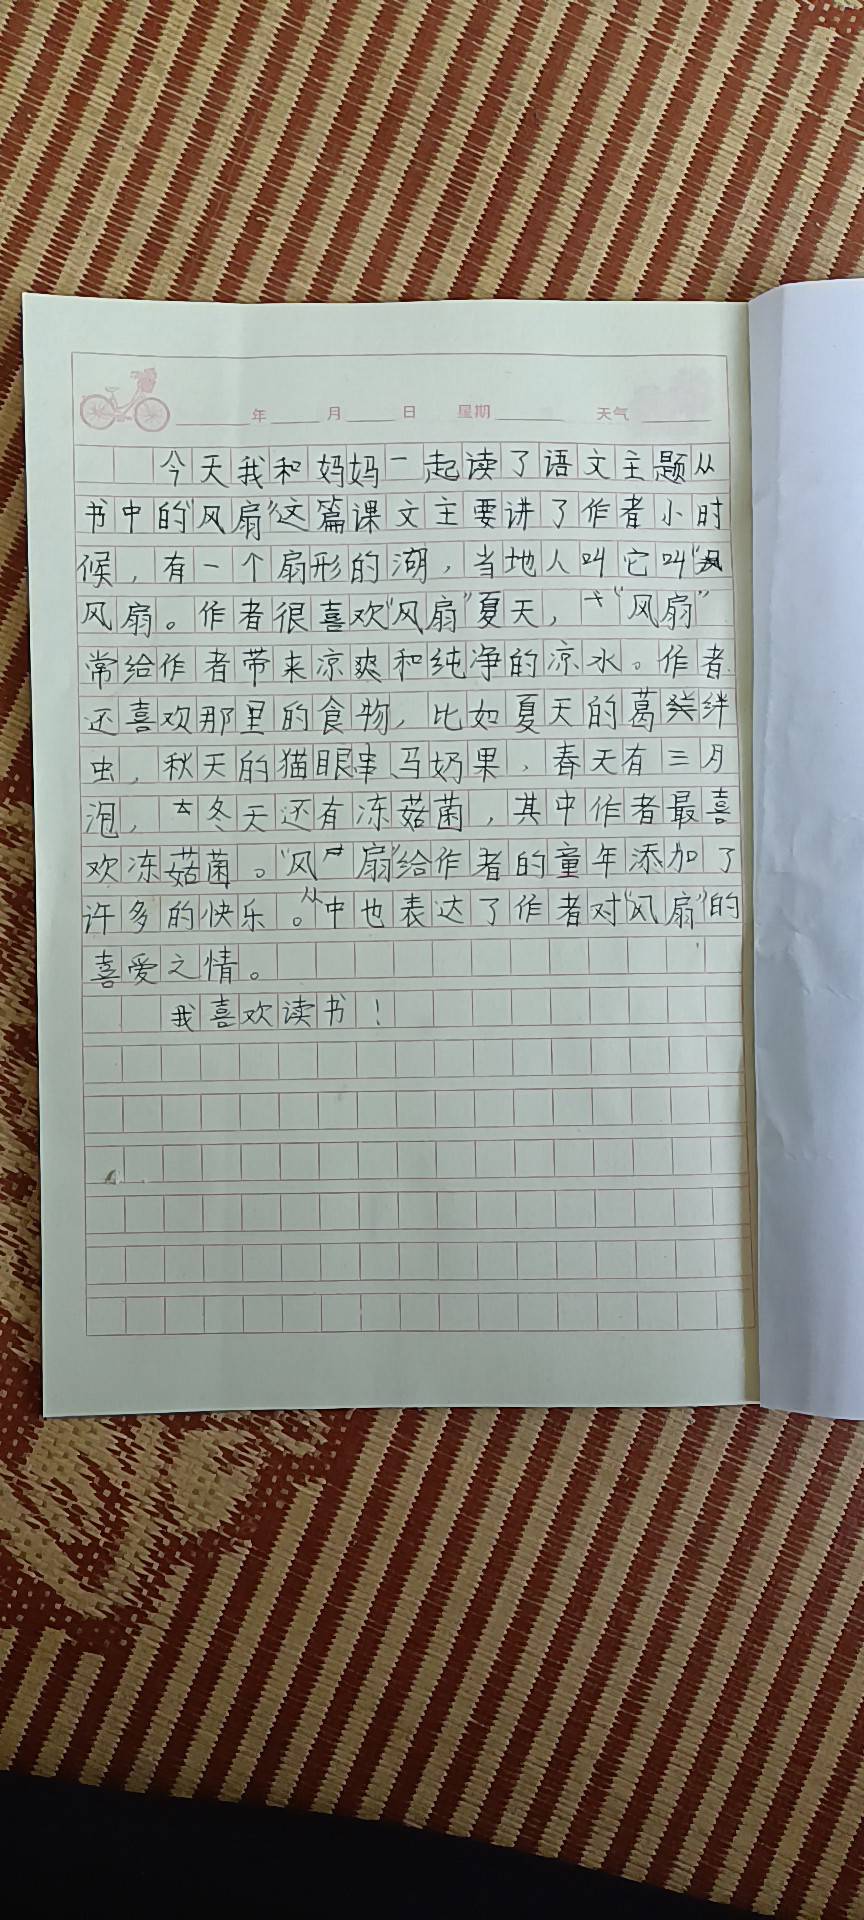 年 月 日 星期 天气
今天我和妈妈一起读了语文主题从
书中的“风扇”这篇课文主要讲了作者小时
候，有一个扇形的湖，当地人叫它叫“
风扇。作者很喜欢“风扇”夏天，“风扇”
常给作者带来凉爽和纯净的凉水。作者
还喜欢那里的食物，比如夏天的葛绊
虫，秋天的猫眼串马奶果，春天有三月
泡，冬天还有冻菇菌，其中作者最喜
欢冻菇菌。“风扇”给作者的童年添加了
许多的快乐。从中也表达了作者对“风扇”的
喜爱之情。
我喜欢读书！